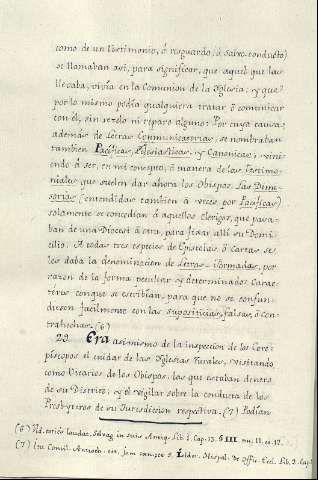 como de un Vestimonio, ò resguardo, (ò Salvo-conducto)
se llamaban asi, para significar, que aquel que las
llevaba, vivia en la Comunion de la Iglesia; y que
por lo mismo podia qualquiera tratar ò comunicar
con él, sin rezelo ni reparo alguno: Por cuya causa,
ademàs de Letras Communicatorias, se nombraban
tambien Pacificas, Eclesiasticas, y Canonicas; vini-
endo à ser, en mi concepto, à manera de las Testimo-
niales que suelen dar ahora los Obispos. Las Dimi-
sorias (entendidas tambien à veces por Pacificas)
solamente se concedian à aquellos Clerigos, que pasa-
ban de una Diocesi à otra, para fixar alli su Domi-
cilio. A todas tres especies de Epistolas, ò Cartas se
les daba la denominacion de Letras-Formadas, por
razon de la forma peculiar y determinados Carac-
téres con que se escribian, para que no se confun-
diesen facilmente con las supositicias, falsas, ò con-
trahechas. (6)
29. Era asimismo de la inspeccion de los Core-
piscopos el cuidar de las Iglesias Rurales, visitando
como Vicarios de los Obispos, las que estaban dentro
de su Distrito; y el vigilar sobre la conducta de los
Presbyteros de su Jurisdiccion respectiva. (7) Podian
(6) Id. citiùs laudat. Selvag. in suis Antiq. Lib. 1. Cap. 13. § III. nn. 11. et 12.
(7) Ita Concil. Ancyra. cit. Jam semper S. Isidor. Hispal. de Offic. Eccl. Lib. 2. Cap.